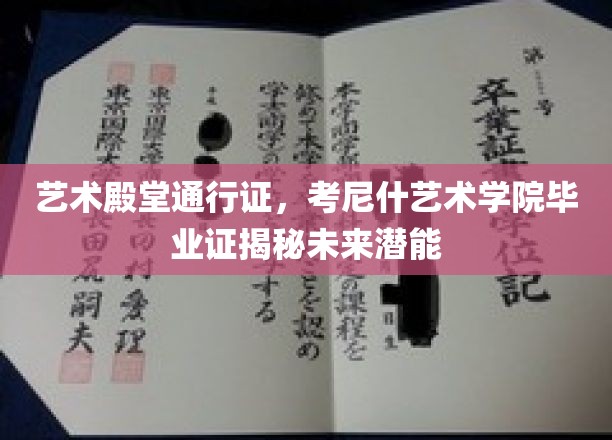 艺术殿堂通行证，考尼什艺术学院毕
业证揭秘未来潜能
第 号
卒業証 学位記
本学商学部 定の課程を
修めて本学 ことを認め
学士(商学)の学 する
平成
東京国際大学 田村愛理
東京国際大学 長田尻嗣夫